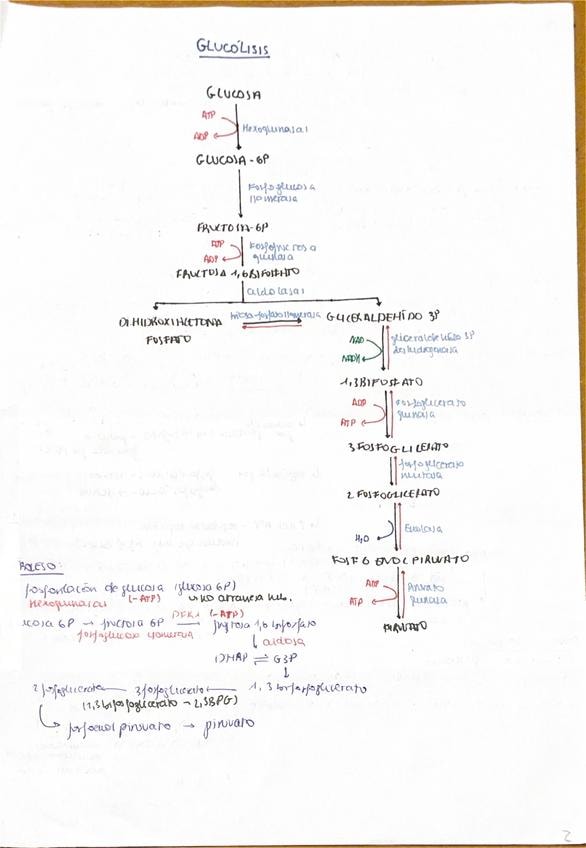 GLUCÓLISIS
GLUCOSA
ATP
ADP
Hexoquinasa I
GLUCOSA-6P
Fosfoglucosa
isomerasa
FRUCTOSA-6P
ATP
ADP
Fosfofructosa
quinasa
FRUCTOSA 1,6 BIFOSFATO
aldolasa I
DI HIDROXIACETONA
FOSFATO
triosa-fosfato isomerasa
GLICERALDEHÍDO 3P
NAD
NADH
gliceraldehído 3P
deshidrogenasa
1,3 BIFOSFATO
ADP
ATP
Fosfoglicerato
quinasa
3 FOSFOGLICERATO
fosfoglicerato
mutasa
2 FOSFOGLICERATO
H2O
Enolasa
FOSFO ENOL PIRUVATO
ADP
ATP
Piruvato
quinasa
PIRUVATO
fosforilación de glucosa (glucosa 6P)
Hexoquinasa I (-ATP)
6P → fructosa 6P → fructosa 1,6 bifosfato
(-ATP)
fosfoglucosa isomerasa
aldosa
DHAP ⇌ G3P
2 fosfoglicerato ← 3 fosfoglicerato ← 1,3 bifosfoglicerato
(1,3 bifosfoglicerato → 2,3BPG)
fosfoenol piruvato → piruvato
2